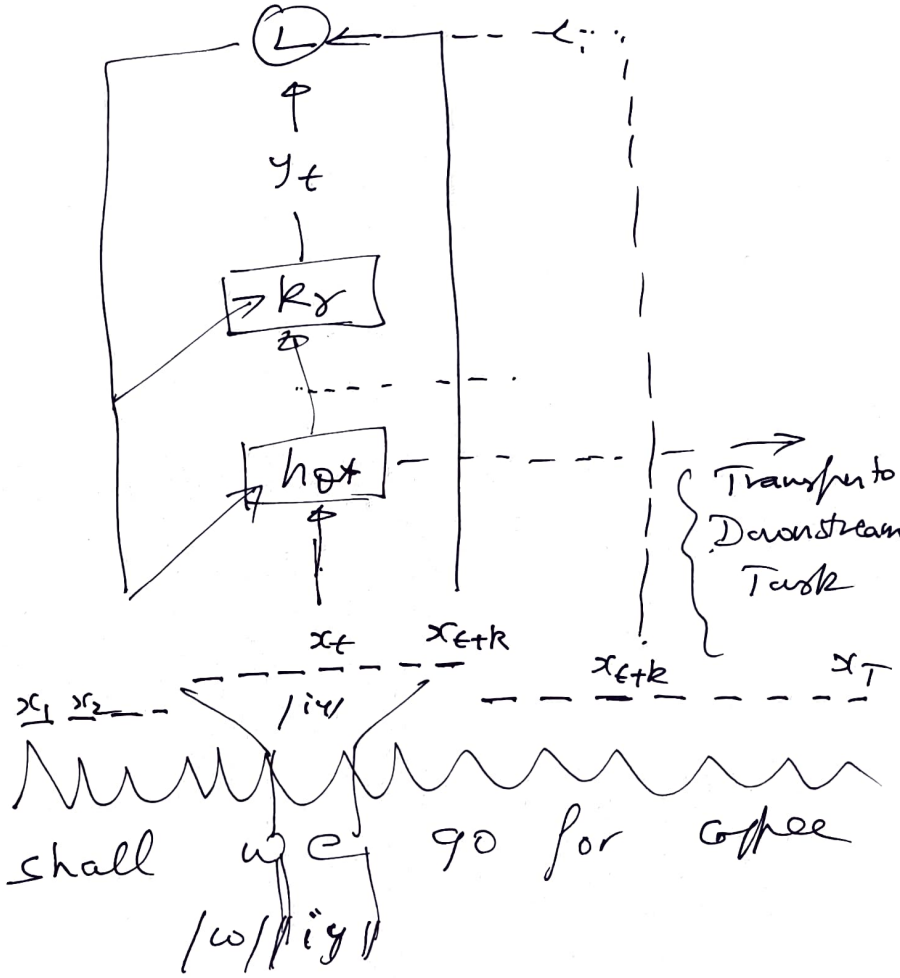 L
y_t
k_γ
h_θ*
Transfer to
Downstream
Task
x_t x_{t+k}
x_{t+k} x_T
x_1 x_2
/iy/
shall we go for coffee
/w/ /iy/